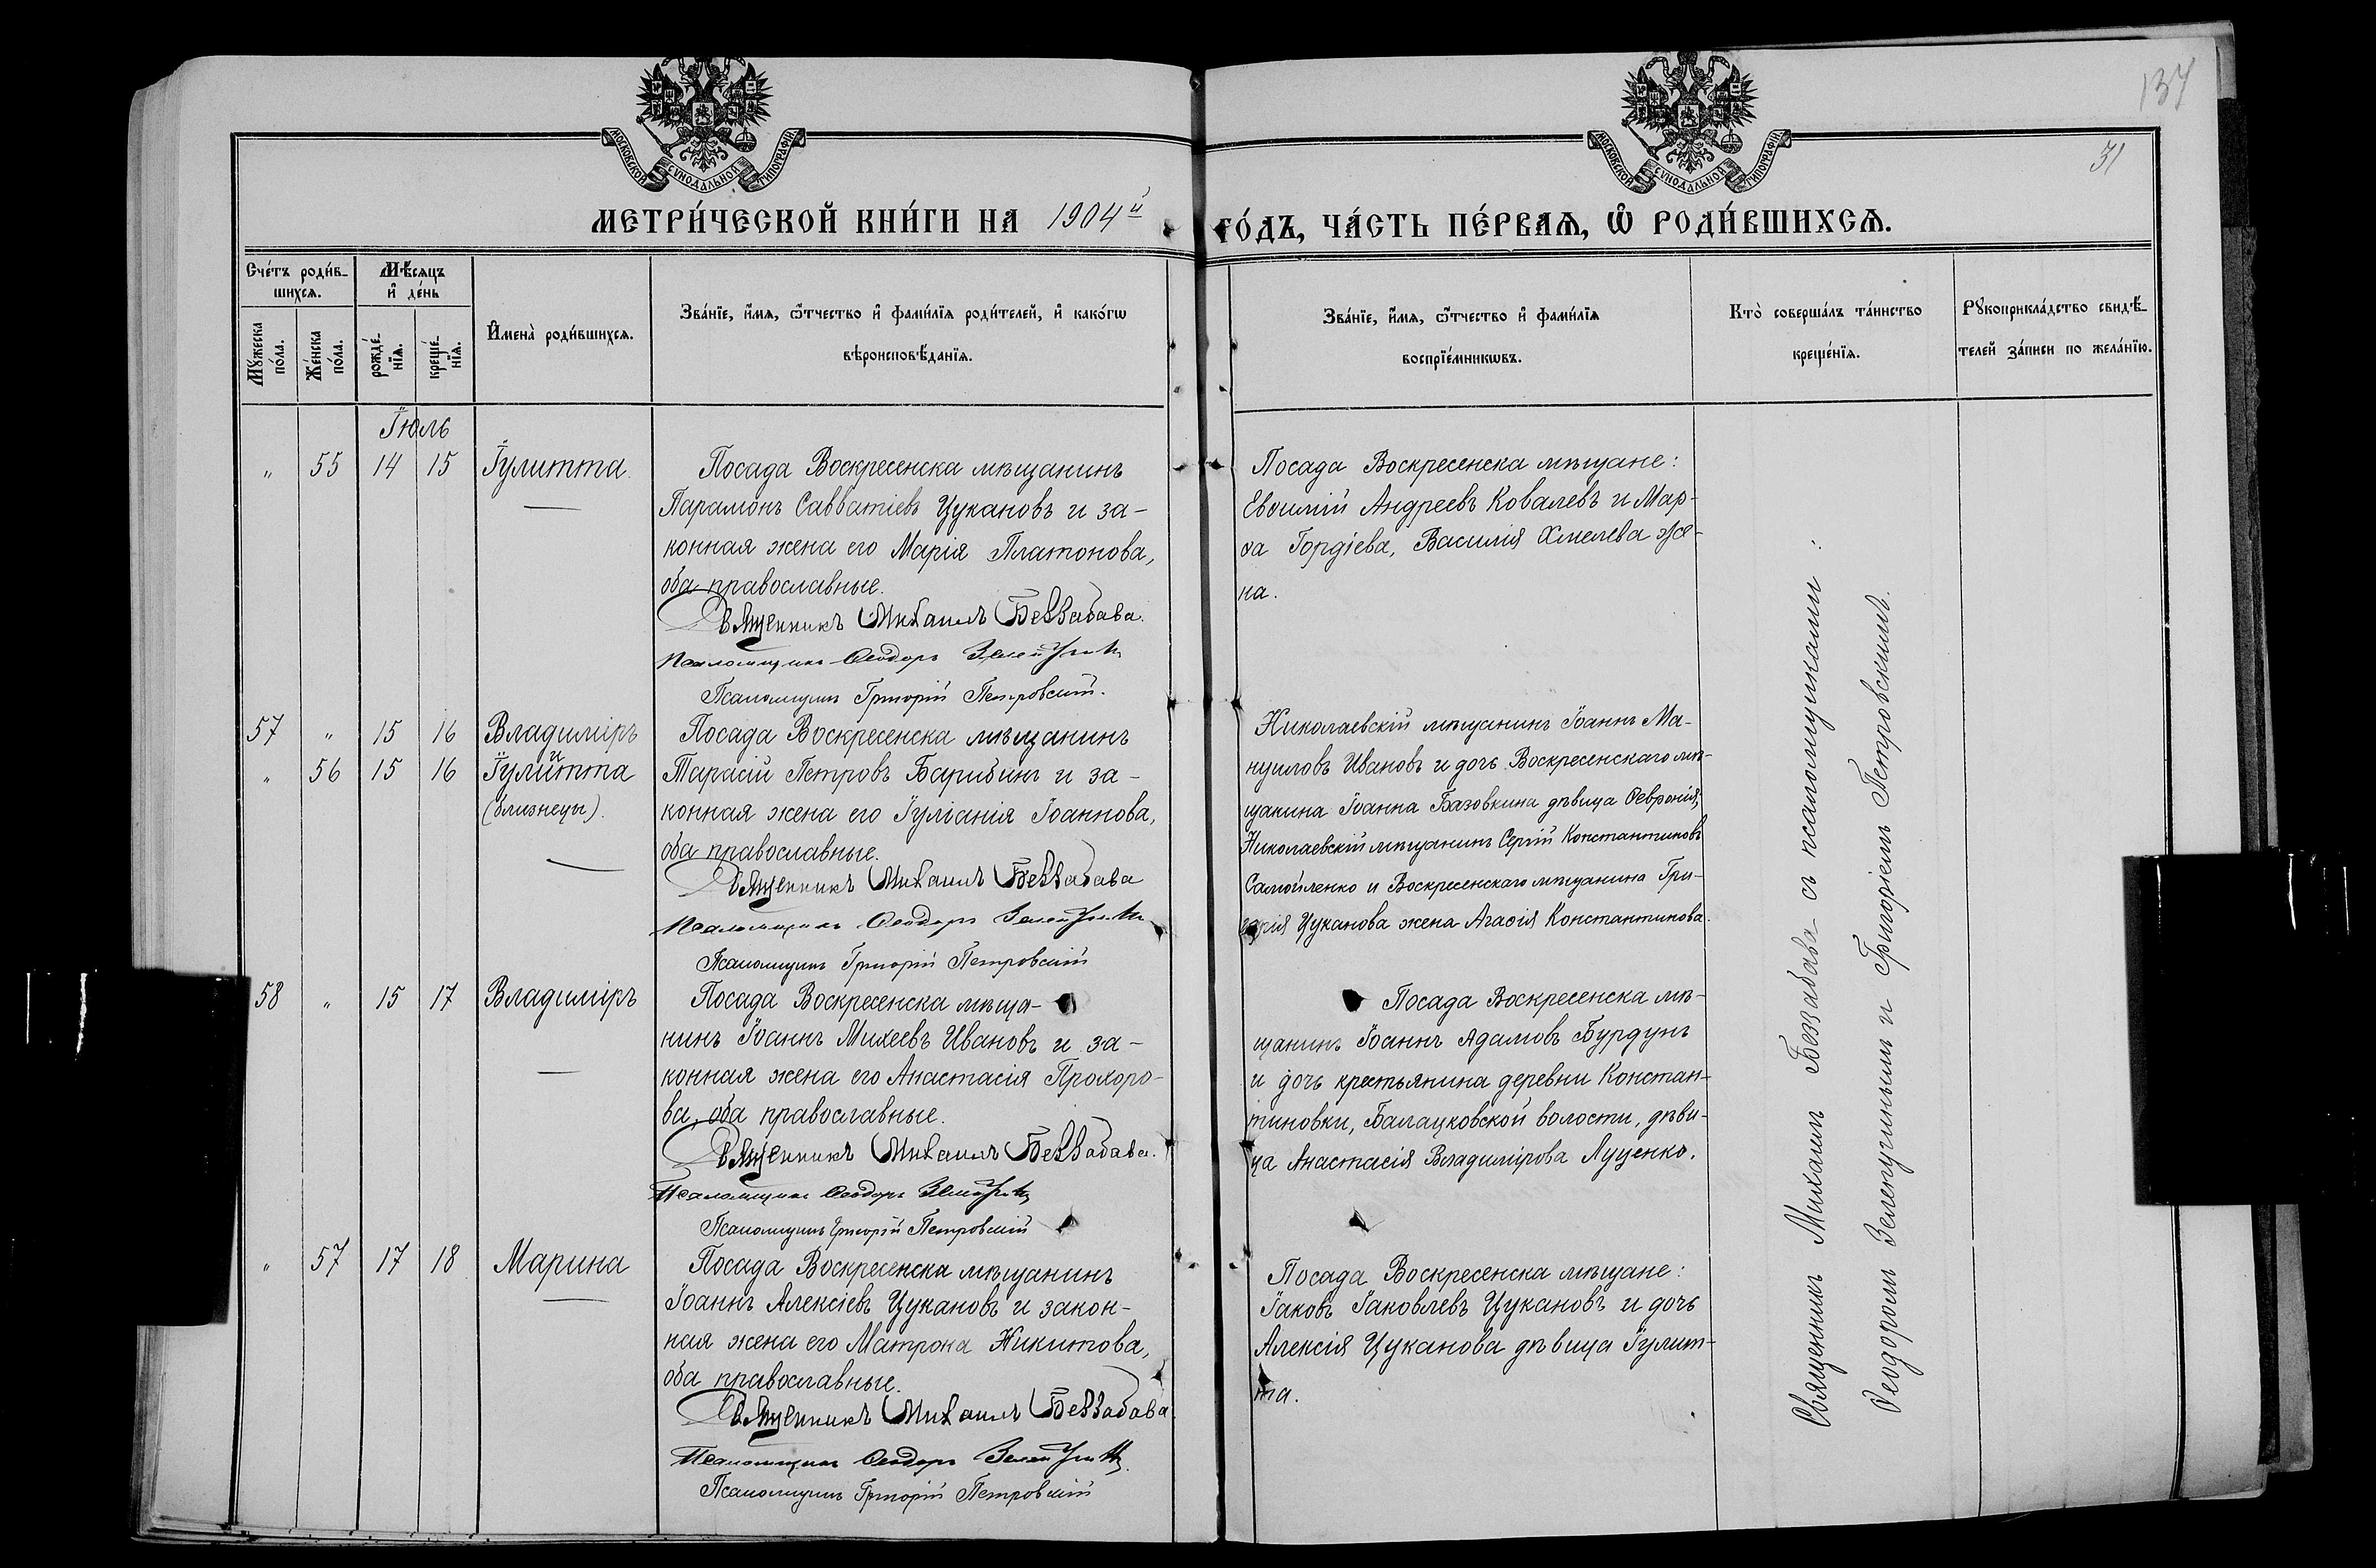 МОСКОВСКОЙ СѴНОДАЛЬНОЙ ТИПОГРАФІИ
МОСКОВСКОЙ СѴНОДАЛЬНОЙ ТИПОГРАФІИ
137
31
МЕТРИ́ЧЕСКОЙ КНИ́ГИ НА 1904й
ГО́ДЪ, ЧА́СТЬ ПЕ́РВАѦ, Ѡ҆ РОДИ́ВШИХСѦ.
Сче́тъ роди́в-
шихсѧ.
Мꙋ́жеска
по́ла.
Же́нска
по́ла.
Мѣ́сяцъ
и҆ де́нь
рожде́-
нїѧ.
креще́-
нїѧ.
И҆мена̀ роди́вшихсѧ.
Зва́нїе, и҆́мѧ, ѻ҆́тчество и҆ фами́лїѧ роди́телей, и҆ како́гѡ
вѣроисповѣ́данїѧ.
Зва́нїе, и҆́мѧ, ѻ҆́тчество и҆ фами́лїѧ
воспрїе́мникѡвъ.
Кто̀ соверша́лъ та́инство
креще́нїѧ.
Рꙋкоприкла́дство свидѣ́-
телей за́писи по жела́нїю.
Іюль
" 55 14 15 Іулитта
Посада Воскресенска мѣщанинъ
Парамонъ Савватіевъ Цукановъ и за-
конная жена его Марія Платонова,
оба православные.
Священникъ Михаилъ Беззабава.
Псаломщикъ Ѳеодоръ
Псаломщикъ Григорій Петровскій.
Посада Воскресенска мѣщане:
Евѳимій Андреевъ Ковалевъ и Мар-
ѳа Гордіева, Василія Хмелева же-
на.
57 " 15 16 Владиміръ
и
" 56 15 16 Іулитта
(близнецы).
Посада Воскресенска мѣщанинъ
Тарасій Петровъ Барибинъ и за-
конная жена его Іуліанія Іоаннова,
оба православные.
Священникъ Михаилъ Беззабава
Псаломщикъ Ѳеодоръ
Псаломщикъ Григорій Петровскій
Николаевскій мѣщанинъ Іоаннъ Ма-
нуиловъ Ивановъ и дочь Воскресенскаго мѣ-
щанина Іоанна Базовкина дѣвица Ѳевронія,
Николаевскій мѣщанинъ Сергій Константиновъ
Самойленко и Воскресенскаго мѣщанина Гри-
горія Цуканова жена Агаѳія Константинова.
58 " 15 17 Владиміръ
Посада Воскресенска мѣща-
нинъ Іоаннъ Михеевъ Ивановъ и за-
конная жена его Анастасія Прохоро-
ва, оба православные.
Священникъ Михаилъ Беззабава.
Псаломщикъ Ѳеодоръ
Псаломщикъ Григорій Петровскій
Посада Воскресенска мѣ-
щанинъ Іоаннъ Адамовъ Бурдунъ
и дочь крестьянина деревни Констан-
тиновки, Балацковской волости, дѣви-
ца Анастасія Владимірова Луценко.
" 57 17 18 Марина
Посада Воскресенска мѣщанинъ
Іоаннъ Алексіевъ Цукановъ и закон-
ная жена его Матрона Никитова,
оба православные.
Священникъ Михаилъ Беззабава.
Псаломщикъ Ѳеодоръ
Псаломщикъ Григорій Петровскій
Посада Воскресенска мѣщане:
Іаковъ Іаковлевъ Цукановъ и дочь
Алексія Цуканова дѣвица Іулит-
та.
Священникъ Михаилъ Беззабава съ псаломщиками:
Ѳеодоромъ Зеленугинымъ и Григоріемъ Петровскимъ.